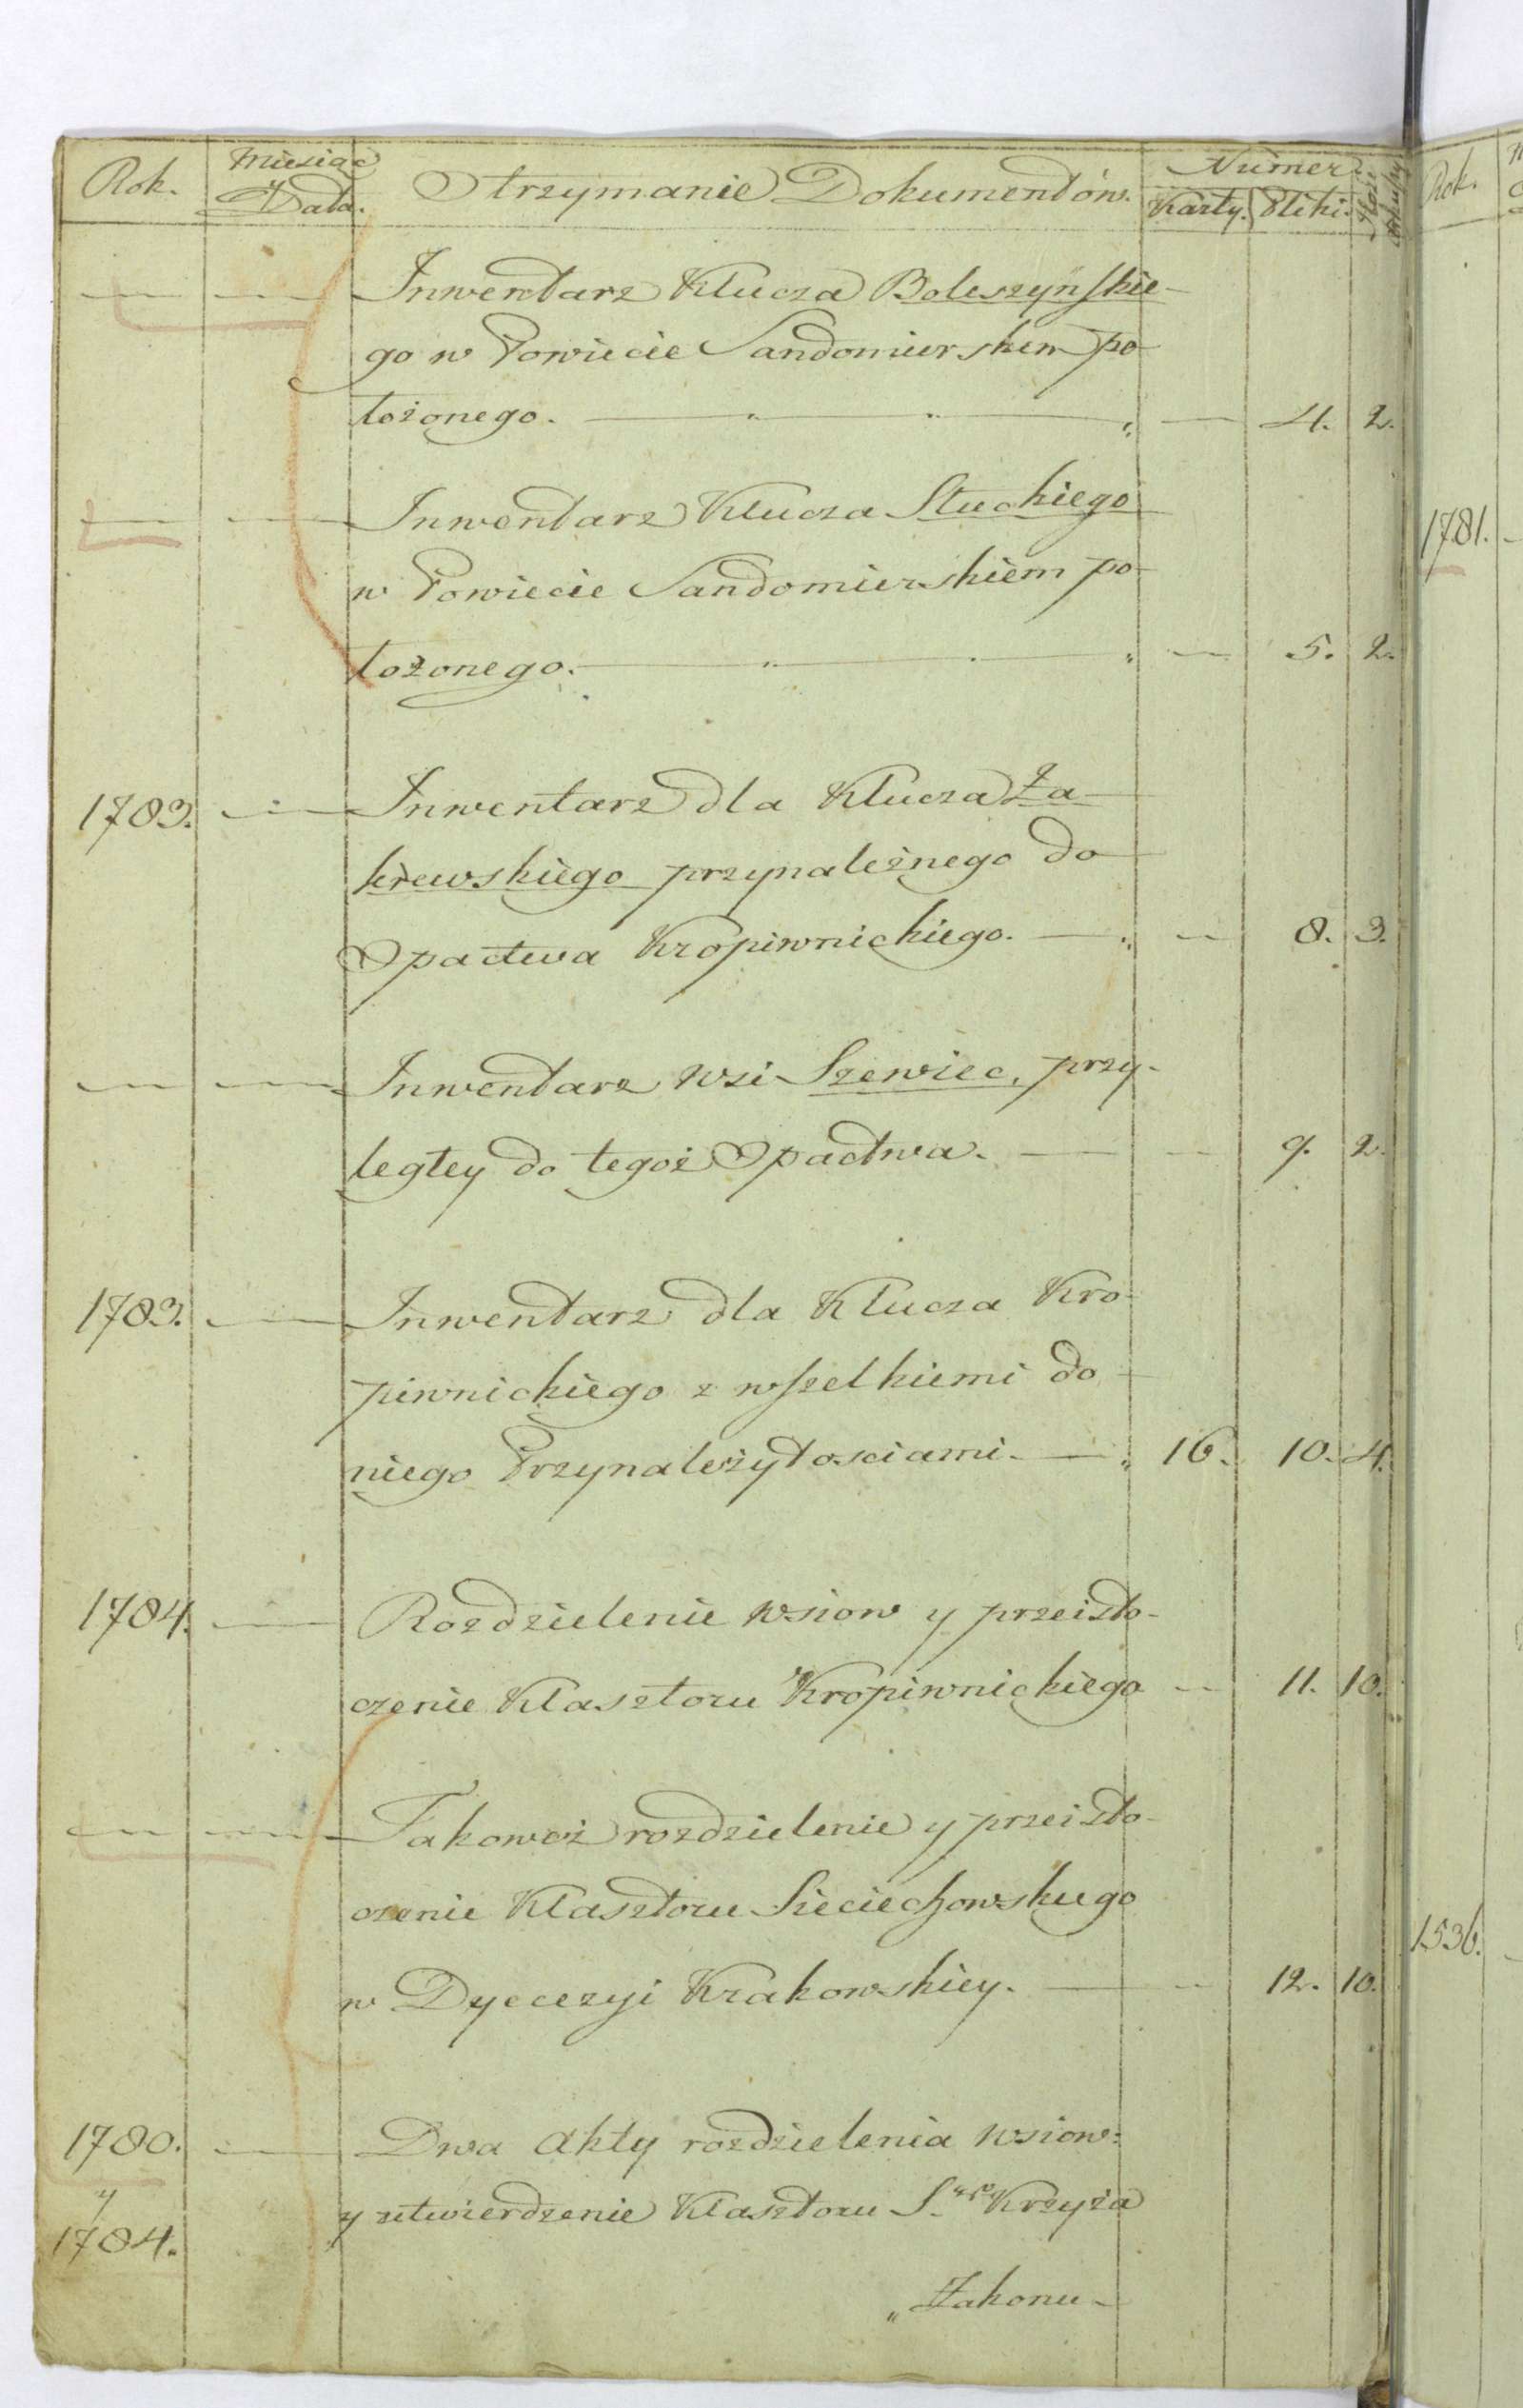 Rok.
Miesiąc
y Data.
Otrzymanie Dokumentów.
Numer
Karty. Pliki.
Inwentarz Klucza Boleszyńskie-
go w Powiecie Sandomierskem po-
łożonego. 4. 2.
Inwentarz Klucza Słuckiego
w Powiecie Sandomierskiem po-
łożonego. 5. 2.
1783. Inwentarz dla Klucza Za-
krewskiego przynależnego do
Opactwa Kropiwnickiego. 8. 3.
Inwentarz wsi Szewiec, przy-
ległey do tegoż Opactwa. 9. 2.
1783. Inwentarz dla Klucza Kro-
piwnickiego z wszelkiemi do
niego Przynależytosciami. 16. 10. 4.
1784. Rozdzielenie wsiow y przeisto-
czenie Klasztoru Kropiwnickiego 11. 10.
Takoweż rozdzielenie y przeisto-
czenie Klasztoru Sieciechowskiego
w Dyecezyi Krakowskiey. 12. 10.
1780. Dwa Akty rozdzielenia wsiow:
y
1784.
y utwierdzenie Klasztoru S. Krzyża
„Zakonu
Rok.
1781.
1536.